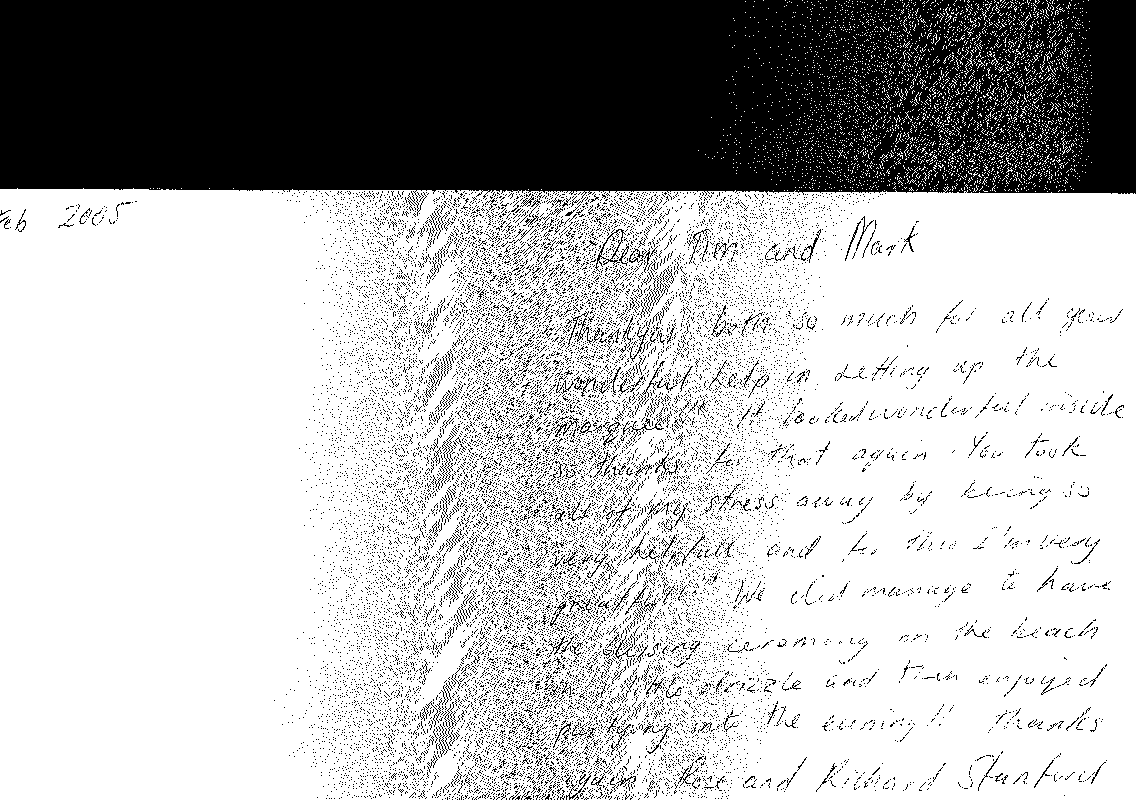 Feb 2005
Dear Tim and Mark
Thankyou both so much for all your
wonderful help in setting up the
marquee!! It looked wonderful inside
so thanks for that again. You took
all of my stress away by being so
very helpfull and for this I'm very
greatful!! We did manage to have
the blessing ceremony on the beach
in a little drizzle and then enjoyed
partying into the evening!! Thanks
again Rose and Richard Stanford